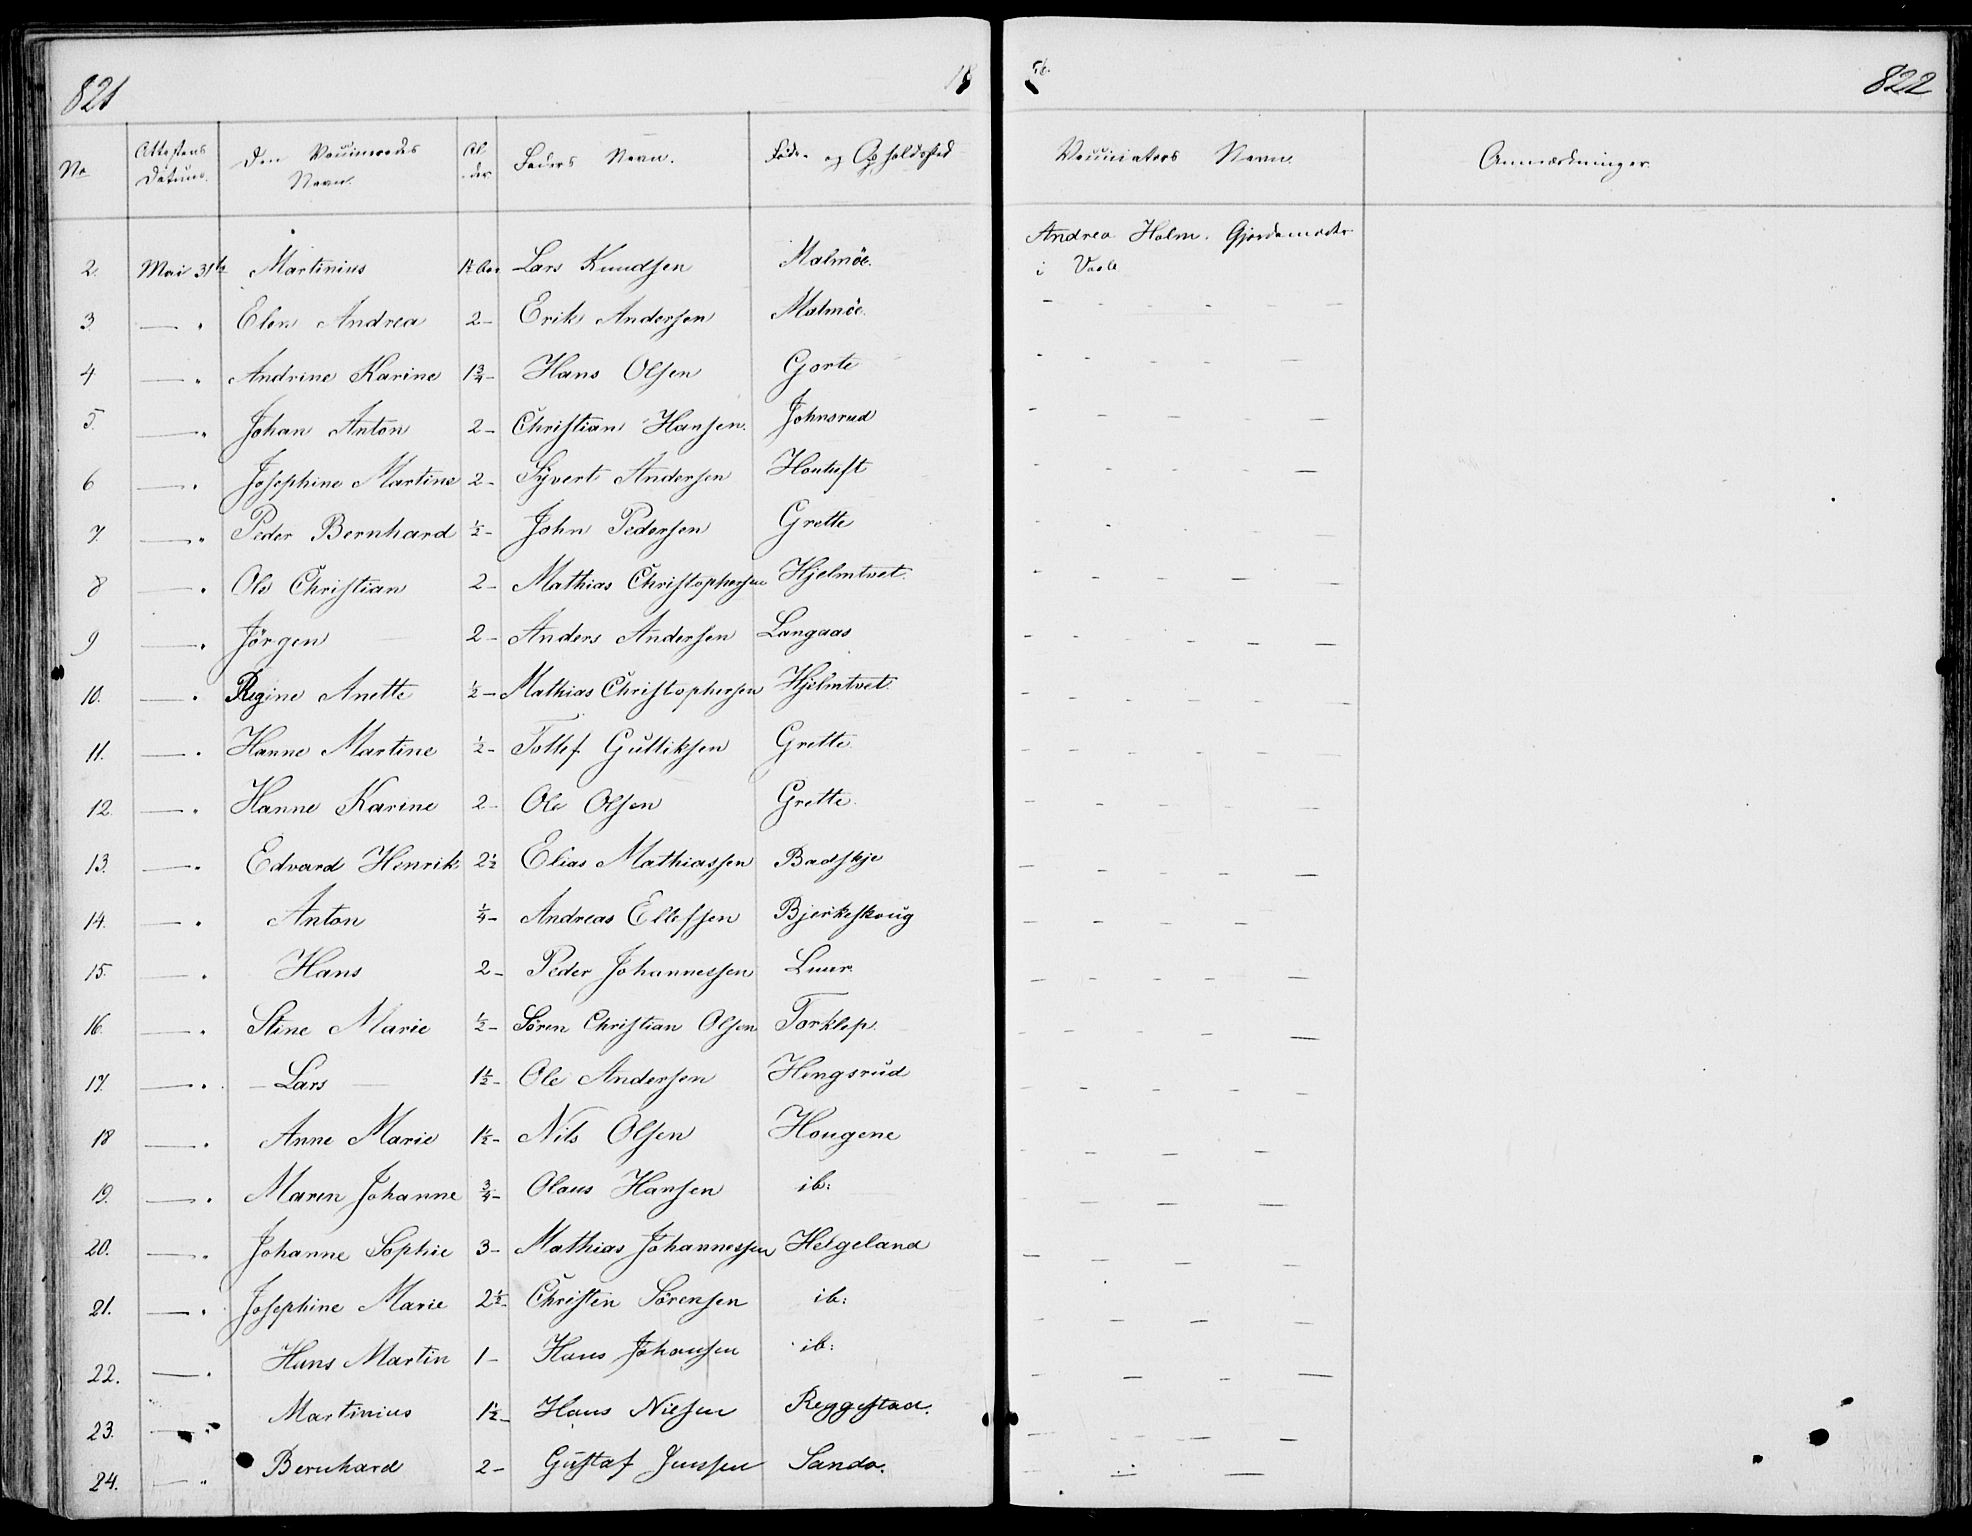 821 18 56. 822
No Attestens Datum. Den Vaccineredes Navn. Alder Faders Navn. Føde- og Opholdssted Vaccinators Navn. Anmærkninger.
Andrea Holm. Gjordemoder
2. Mai 31te Martinius Lars Knudsen Malmöe. i Vaale
3. — " Elen Andrea 2 – Erik Andersen Malmöe. – – – – – –
4 — " Andrine Karine 1¾ – Hans Olsen Gorte – – – – –
5. — " Johan Anton 2 – Christian Hansen. Johnsrud – – – – –
6 — " Josephine Martine 2 – Syvert Andersen Houtuft – – – – –
7. — " Peder Bernhard ½ – John Pedersen Grette – – – – –
8 — " Ole Christian 2 – Mathias Christophersen Hjelmtvet. – – – – –
9 — " Jörgen 2 – Anders Andersen Langaas – – – – –
10. — " Regine Anette ½ – Mathias Christophersen Hjelmtvet. – – – – –
11. — " Hanne Martine ½ – Tollef Gulliksen Grette – – – – –
12. — " Hanne Karine 2 – Ole Olsen Grette. – – – – –
13. — " Edvard Henrik 2½ Elias Mathiassen Badskje – – – – –
14. — " Anton ¼ – Andreas Ellefsen Bjerkeskoug – – – – –
15. — " Hans 2 – Peder Johannessen Luur – – – – –
16. — " Stine Marie ½ – Sören Christian Olsen Torklep. – – – – –
17. — " – Lars – 1½ – Ole Andersen Hengsrud – – – – –
18 — " Anne Marie 1½ – Nils Olsen Hougene – – – – –
19. — " Maren Johanne ¾ – Olaus Hansen ib: – – – – –
20. — " Johanne Sophie 3 – Mathias Johannessen Helgeland – – – – –
21. — " Josephine Marie 2½ – Christen Sörensen ib: – – – – –
22. — " Hans Martin 1 – Hans Johansen ib: – – – – –
23. — " Martinius 1½ – Hans Nielsen Reggestad. – – – – –
24. — " Bernhard 2 – Gustaf Jenssen Sando. – – –